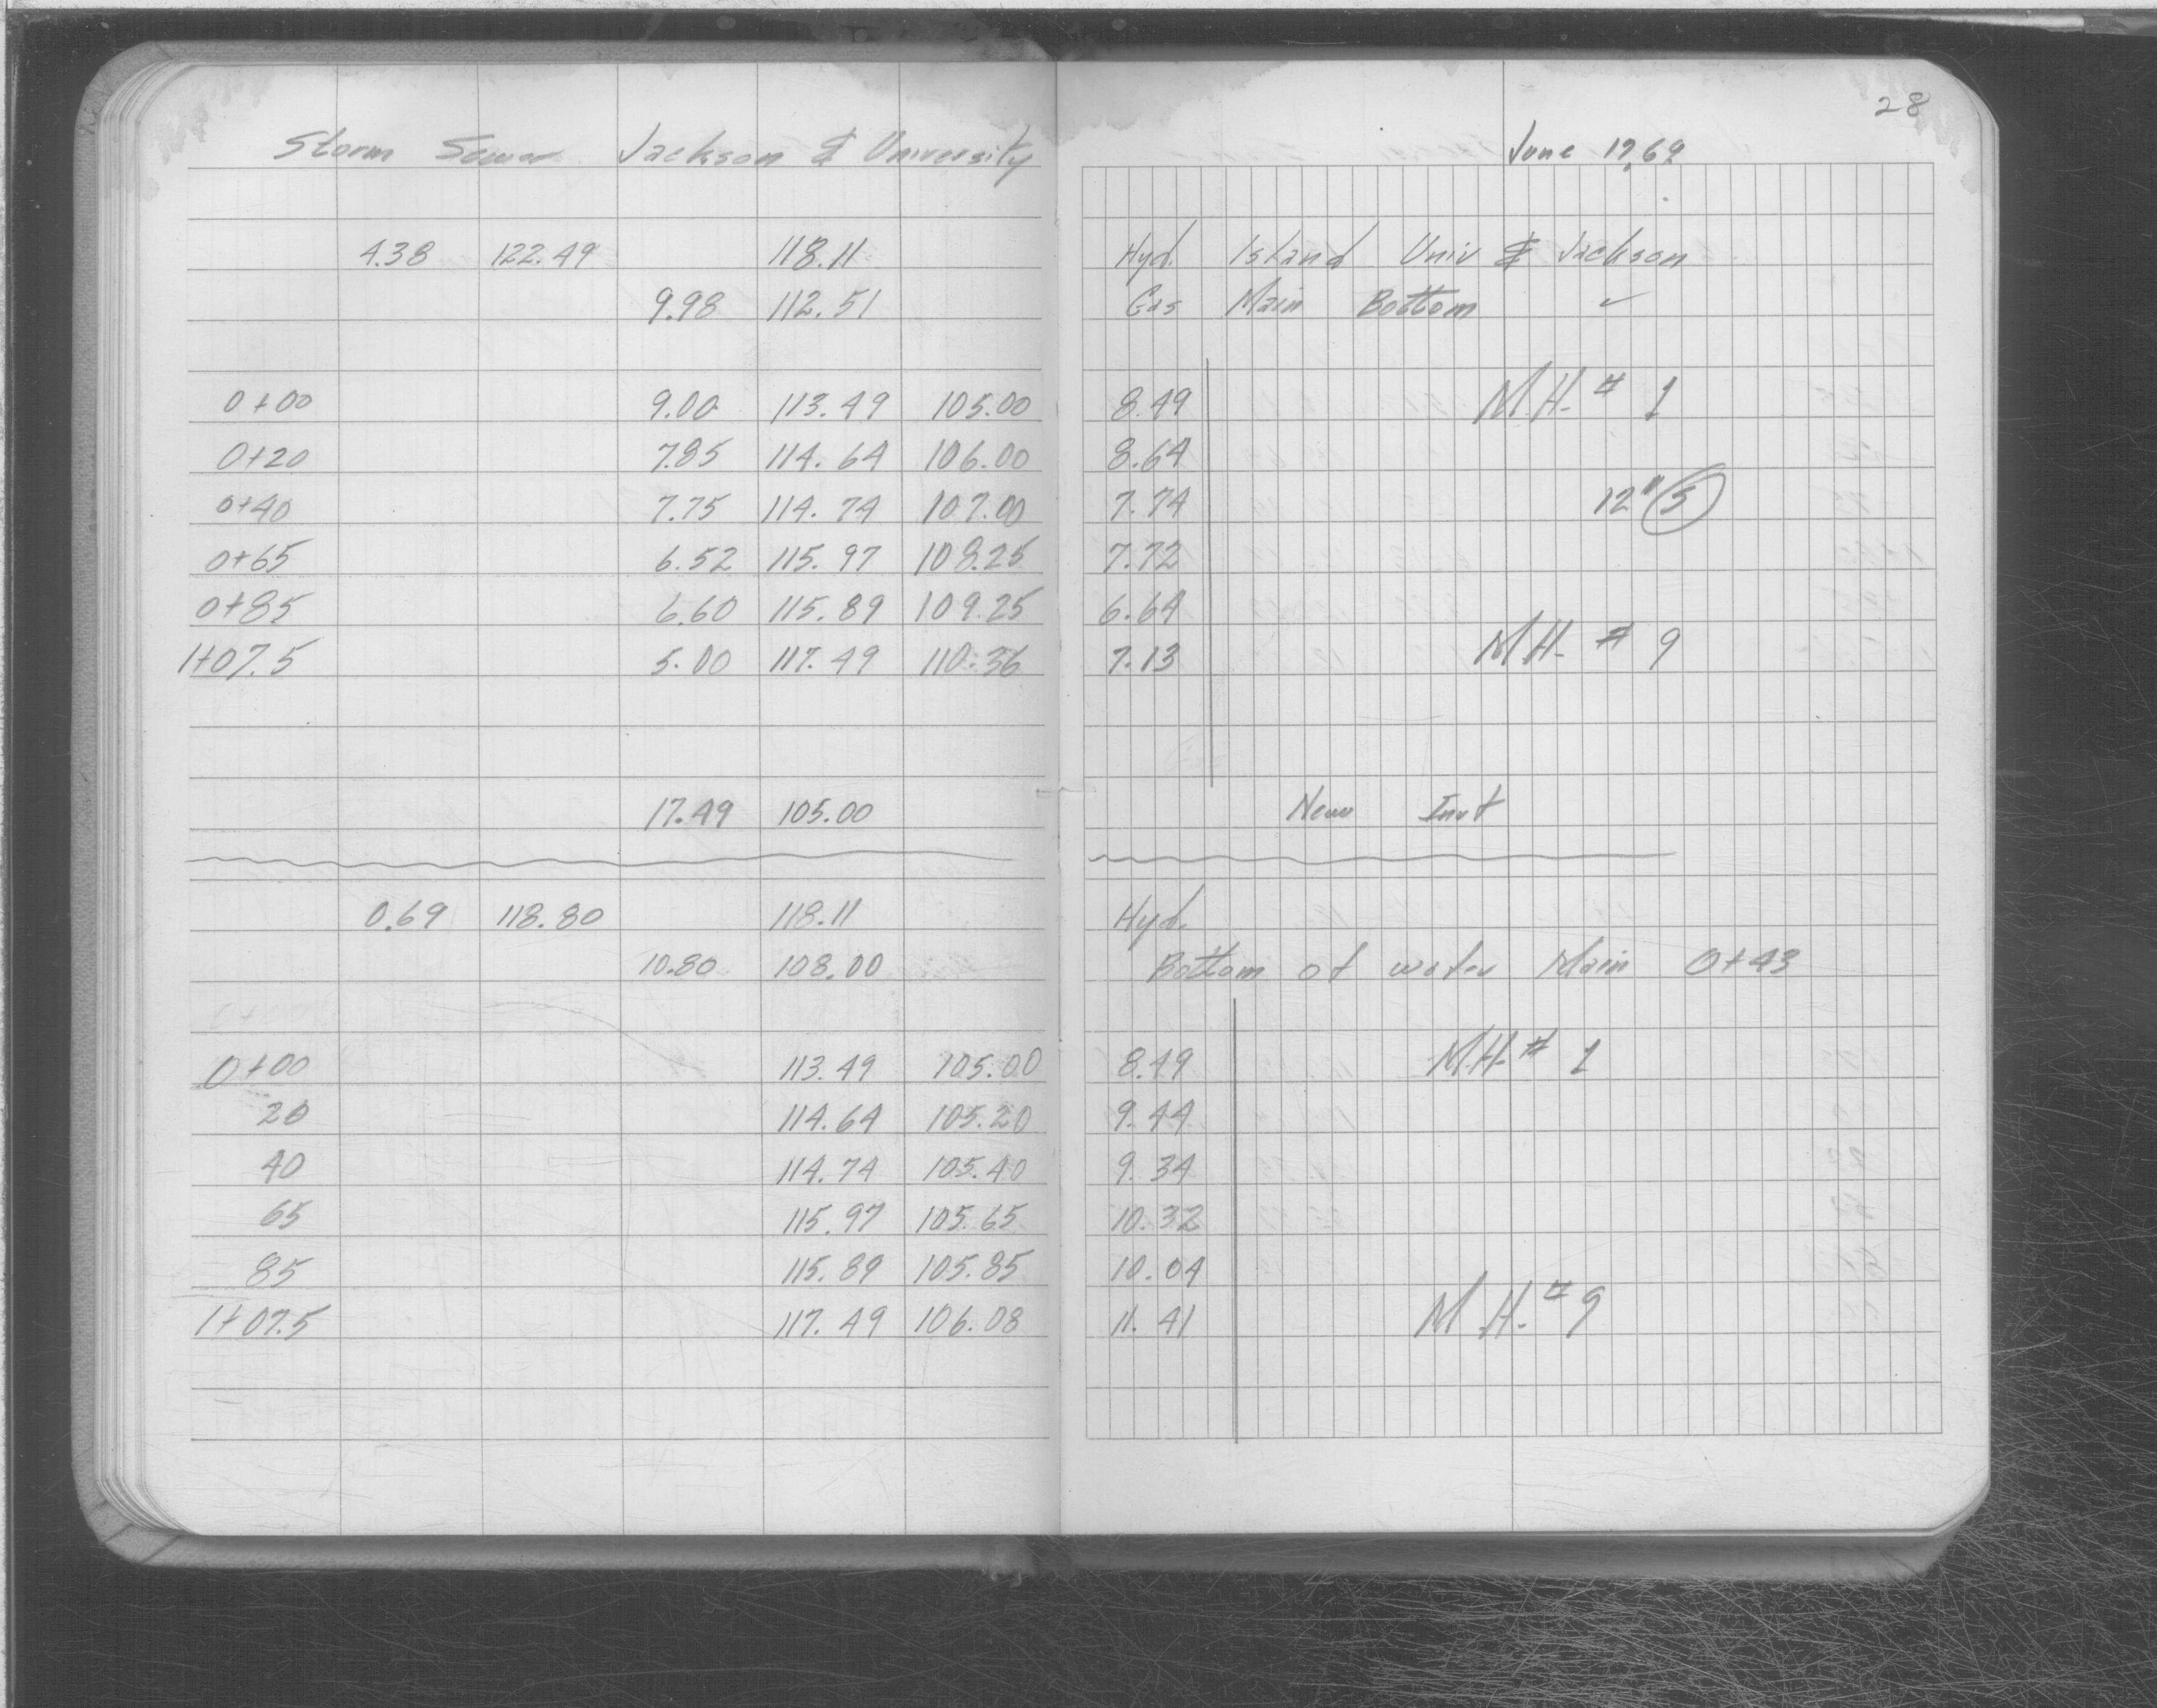 28
Storm Sewer Jackson & University June 17, 69
4.38 122.49 118.11 Hyd. Island Univ & Jackson
9.98 112.51 Gas Main Bottom ✓
0+00 9.00 113.49 105.00 8.49 M.H. # 1
0+20 7.85 114.64 106.00 8.64
0+40 7.75 114.74 107.00 7.74 12" S
0+65 6.52 115.97 108.25 7.72
0+85 6.60 115.89 109.25 6.64
1+07.5 5.00 117.49 110.36 7.13 M.H. # 9
17.49 105.00 New Invt
0.69 118.80 118.11 Hyd.
10.80 108.00 Bottom of water Main 0+43
0+00 113.49 105.00 8.49 M.H. # 1
20 114.64 105.20 9.44
40 114.74 105.40 9.34
65 115.97 105.65 10.32
85 115.89 105.85 10.04
1+07.5 117.49 106.08 11.41 M.H. # 9